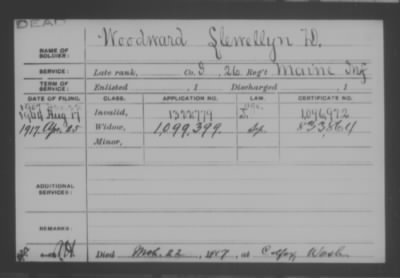 DEAD
Woodward Llewellyn D.
NAME OF SOLDIER:
SERVICE: Late rank, Co. I, 26 Reg't Maine Inf
TERM OF SERVICE: Enlisted , 1 Discharged , 1
DATE OF FILING. CLASS. APPLICATION NO. LAW. CERTIFICATE NO.
Aug 17 Invalid, 1322779 1,096,972
1917 Apr. 25 Widow, 1,099,399
Minor,
ADDITIONAL SERVICES:
REMARKS:
Died Mch. 22, 1917, at Colfax Wash.